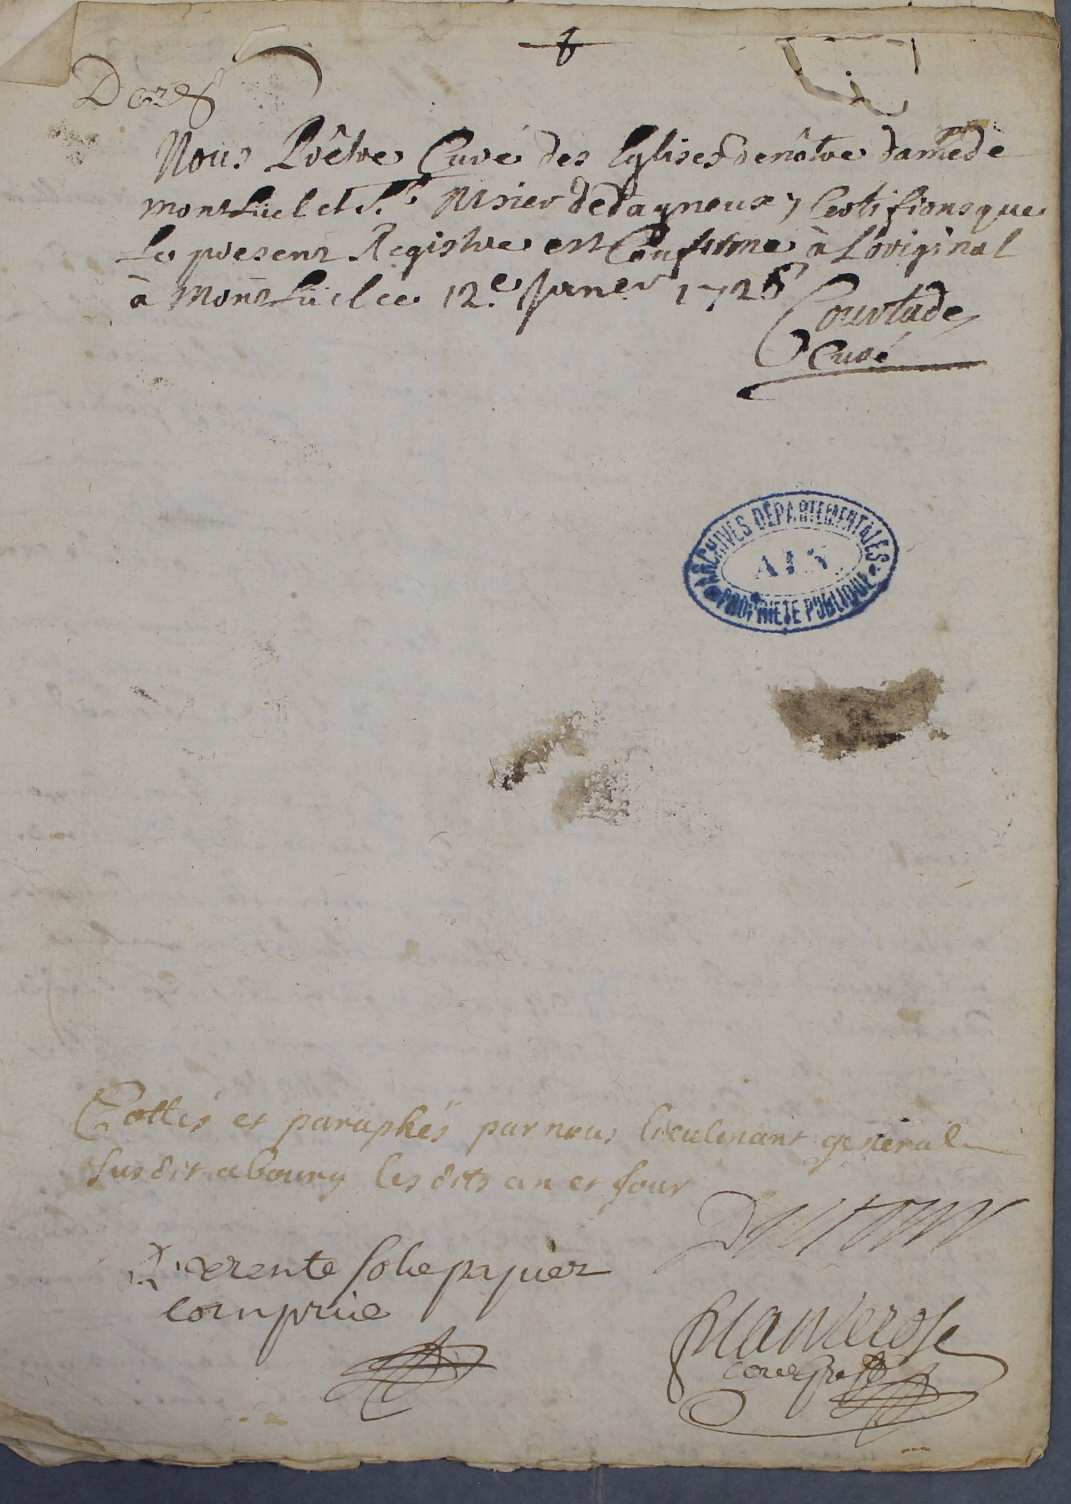 Nous Prêtre Curé des Eglises de nôtre dame de
montluel et St. de dagneux, Certifions que
Le present Registre est Conforme à L'original
à Montluel ce 12e Janer 1726
Courtade
Curé
ARCHIVES DÉPARTEMENTALES
AIN
PROPRIÉTÉ PUBLIQUE
Cottés et paraphés par nous lieutenant general
susdit a bourg les dits an et jour
trente sols papier
comprie